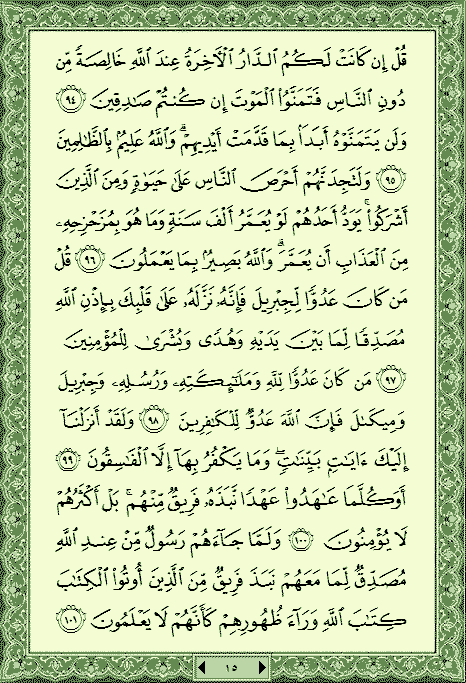 قُلْ إِن كَانَتْ لَكُمُ الدَّارُ الْآخِرَةُ عِندَ اللَّهِ خَالِصَةً مِّن
دُونِ النَّاسِ فَتَمَنَّوُا الْمَوْتَ إِن كُنتُمْ صَادِقِينَ ٩٤
وَلَن يَتَمَنَّوْهُ أَبَدًا بِمَا قَدَّمَتْ أَيْدِيهِمْ ۗ وَاللَّهُ عَلِيمٌ بِالظَّالِمِينَ
٩٥ وَلَتَجِدَنَّهُمْ أَحْرَصَ النَّاسِ عَلَىٰ حَيَوٰةٍ وَمِنَ الَّذِينَ
أَشْرَكُوا ۚ يَوَدُّ أَحَدُهُمْ لَوْ يُعَمَّرُ أَلْفَ سَنَةٍ وَمَا هُوَ بِمُزَحْزِحِهِۦ
مِنَ الْعَذَابِ أَن يُعَمَّرَ ۗ وَاللَّهُ بَصِيرٌۢ بِمَا يَعْمَلُونَ ٩٦ قُلْ
مَن كَانَ عَدُوًّا لِّجِبْرِيلَ فَإِنَّهُۥ نَزَّلَهُۥ عَلَىٰ قَلْبِكَ بِإِذْنِ اللَّهِ
مُصَدِّقًا لِّمَا بَيْنَ يَدَيْهِ وَهُدًى وَبُشْرَىٰ لِلْمُؤْمِنِينَ
٩٧ مَن كَانَ عَدُوًّا لِّلَّهِ وَمَلَٰٓئِكَتِهِۦ وَرُسُلِهِۦ وَجِبْرِيلَ
وَمِيكَىٰلَ فَإِنَّ اللَّهَ عَدُوٌّ لِّلْكَافِرِينَ ٩٨ وَلَقَدْ أَنزَلْنَآ
إِلَيْكَ ءَايَٰتٍۭ بَيِّنَٰتٍ ۖ وَمَا يَكْفُرُ بِهَآ إِلَّا الْفَاسِقُونَ ٩٩
أَوَكُلَّمَا عَٰهَدُوا عَهْدًا نَّبَذَهُۥ فَرِيقٌ مِّنْهُم ۚ بَلْ أَكْثَرُهُمْ
لَا يُؤْمِنُونَ ١٠٠ وَلَمَّا جَآءَهُمْ رَسُولٌ مِّنْ عِندِ اللَّهِ
مُصَدِّقٌ لِّمَا مَعَهُمْ نَبَذَ فَرِيقٌ مِّنَ الَّذِينَ أُوتُوا الْكِتَٰبَ
كِتَٰبَ اللَّهِ وَرَآءَ ظُهُورِهِمْ كَأَنَّهُمْ لَا يَعْلَمُونَ ١٠١
١٥